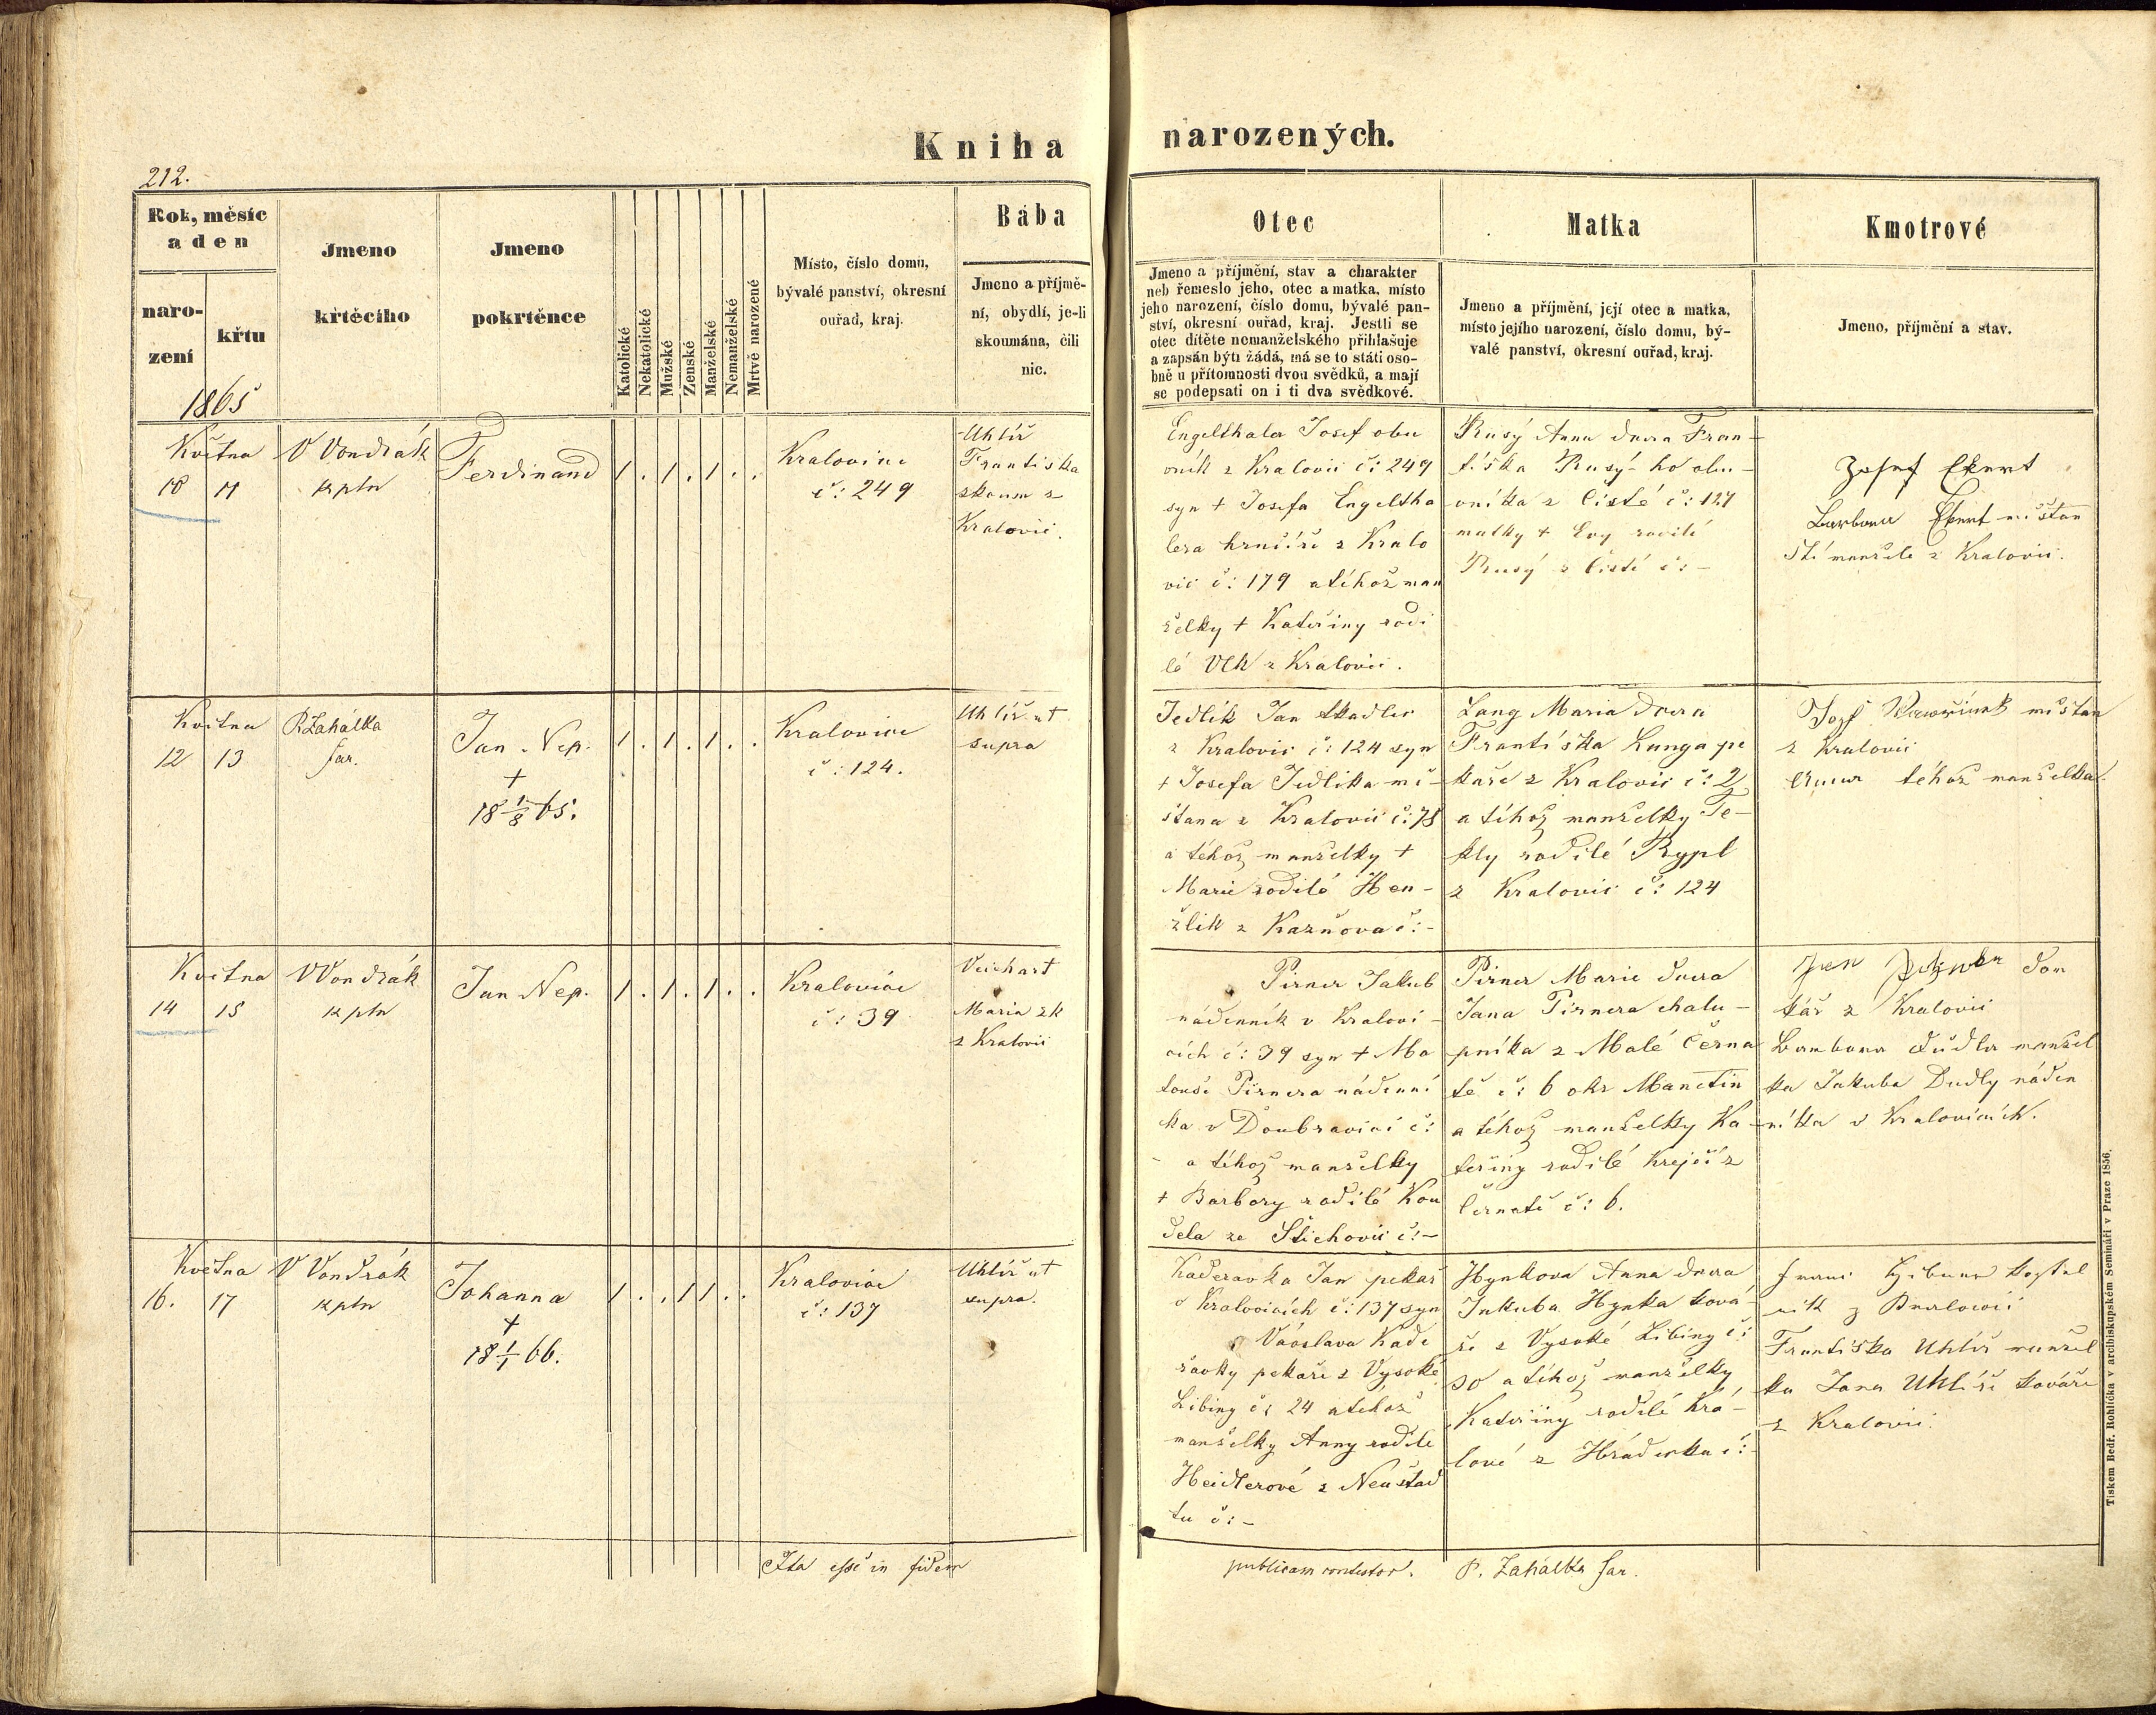 Kniha narozených.
212.
Rok, měsíc
a den
naro-
zení
křtu
1865
Jmeno
křtěcího
Jmeno
pokrtěnce
Katolické
Nekatolické
Mužské
Ženské
Manželské
Nemanželské
Mrtvě narozené
Místo, číslo domu,
bývalé panství, okresní
ouřad, kraj.
Bába
Jmeno a příjmě-
ní, obydlí, je-li
skoumána, čili
nic.
Otec
Jmeno a příjmění, stav a charakter
neb řemeslo jeho, otec a matka, místo
jeho narození, číslo domu, bývalé pan-
ství, okresní ouřad, kraj. Jestli se
otec dítěte nemanželského přihlašuje
a zapsán býti žádá, má se to státi oso-
bně u přítomnosti dvou svědků, a mají
se podepsati on i ti dva svědkové.
Matka
Jmeno a příjmění, její otec a matka,
místo jejího narození, číslo domu, bý-
valé panství, okresní ouřad, kraj.
Kmotrové
Jmeno, příjmění a stav.
Května
10 11
V Vondrák
kpln
Ferdinand
1 . 1 . 1 . .
Kralovice
č: 249
Uhlíř
Františka
skoum z
Kralovic.
Engelthaler Josef obu
vník z Kralovic č: 249
syn + Josefa Engeltha
lera hrnčíře z Kralo
vic č: 179 a téhož man
želky + Kateřiny rodi
lé Vlk z Kralovic.
Rusý Anna dcera Fran-
tiška Rusý-ho obu-
vníka z Čisté č: 127
matky + Evy rodilé
Rusý z Čisté č: -
Josef Ekert
Barbora Ekert měšťan
ští manželé z Kralovic.
Května
12 13
P. Zahálka
far.
Jan Nep.
+
18 1/8 65.
1 . 1 . 1 . .
Kralovice
č: 124.
Uhlíř ut
supra
Jedlík Jan tkadlec
z Kralovic č: 124 syn
+ Josefa Jedlíka mě-
šťana z Kralovic č: 78
a téhož manželky +
Marie rodilé Hen-
žlik z Kazňova č: -
Lang Maria dcera
Františka Langa pe
kaře z Kralovic č: 2
a téhož manželky Te-
kly rodilé Rypl
z Kralovic č: 124
Josef měšťan
z Kralovic
Anna téhož manželka.
Května
14 15
V Vondrák
kpln
Jan Nep.
1 . 1 . 1 . .
Kralovice
č: 39
Veichart
Maria zk
z Kralovic
Pirner Jakub
nádenník v Kralovi-
cích č: 39 syn + Ma
touše Pirnera nádenní
ka v Doubravici č:
- a téhož manželky
+ Barbory rodilé Kou
dela ze Štichovic č: -
Pirner Marie dcera
Jana Pirnera chalu-
pníka z Malé Černa
tě č: 6 okr Manetín
a téhož manželky Ka-
teřiny rodilé Krejčí z
Černatě č: 6.
Jan dom
kář z Kralovic
Barbora Dudla manžel
ka Jakuba Dudly náden
níka v Kralovicích.
Května
16. 17
V Vondrák
kpln
Johanna
+
18 1/1 66.
1 . . 1 1 . .
Kralovice
č: 137
Uhlíř ut
supra.
Kaderavka Jan pekař
v Kralovicích č: 137 syn
Václava Kade
řavky pekaře z Vysoké
Libiny č: 24 a téhož
manželky Anny rodilé
Heidlerové z Neustad
tu č: -
Hynkova Anna dcera
Jakuba Hynka ková-
ře z Vysoké Libiny č:
50 a téhož manželky
Kateřiny rodilé Krá-
lové z Hradecka č: -
kostel
ník z Kralovic
Františka Uhlíř manžel
ka Jana Uhlíře kováře
z Kralovic.
Ita esse in fidem publicam contestor. P. Zahálka far.
Tiskem Bedř. Rohlíčka v arcibiskupském Semináři v Praze 1856.